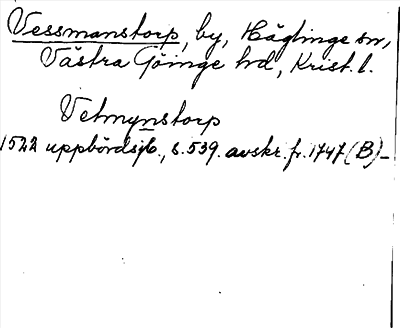 Vessmanstorp, by, Häglinge sn,
Västra Göinge hd, Krist. l.
Vetmynstorp
1522 uppbördsjb., s. 539. avskr. fr. 1747 (B)_